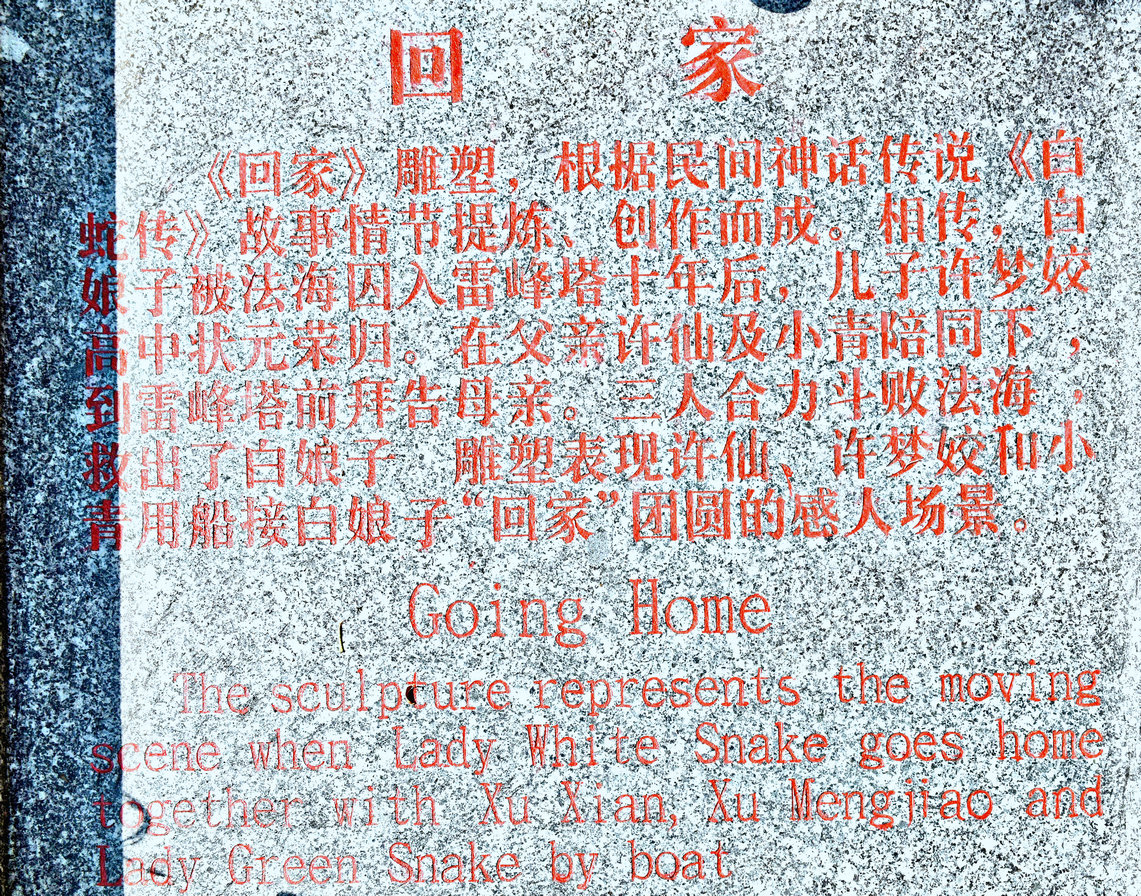 回家
《回家》雕塑，根据民间神话传说《白
蛇传》故事情节提炼、创作而成。相传，白
娘子被法海囚入雷峰塔十年后，儿子许梦姣
高中状元荣归。在父亲许仙及小青陪同下，
到雷峰塔前拜告母亲。三人合力斗败法海，
救出了白娘子 雕塑表现许仙、许梦姣和小
青用船接白娘子“回家”团圆的感人场景。
Going Home
The sculpture represents the moving
scene when Lady White Snake goes home
together with Xu Xian, Xu Mengjiao and
Lady Green Snake by boat